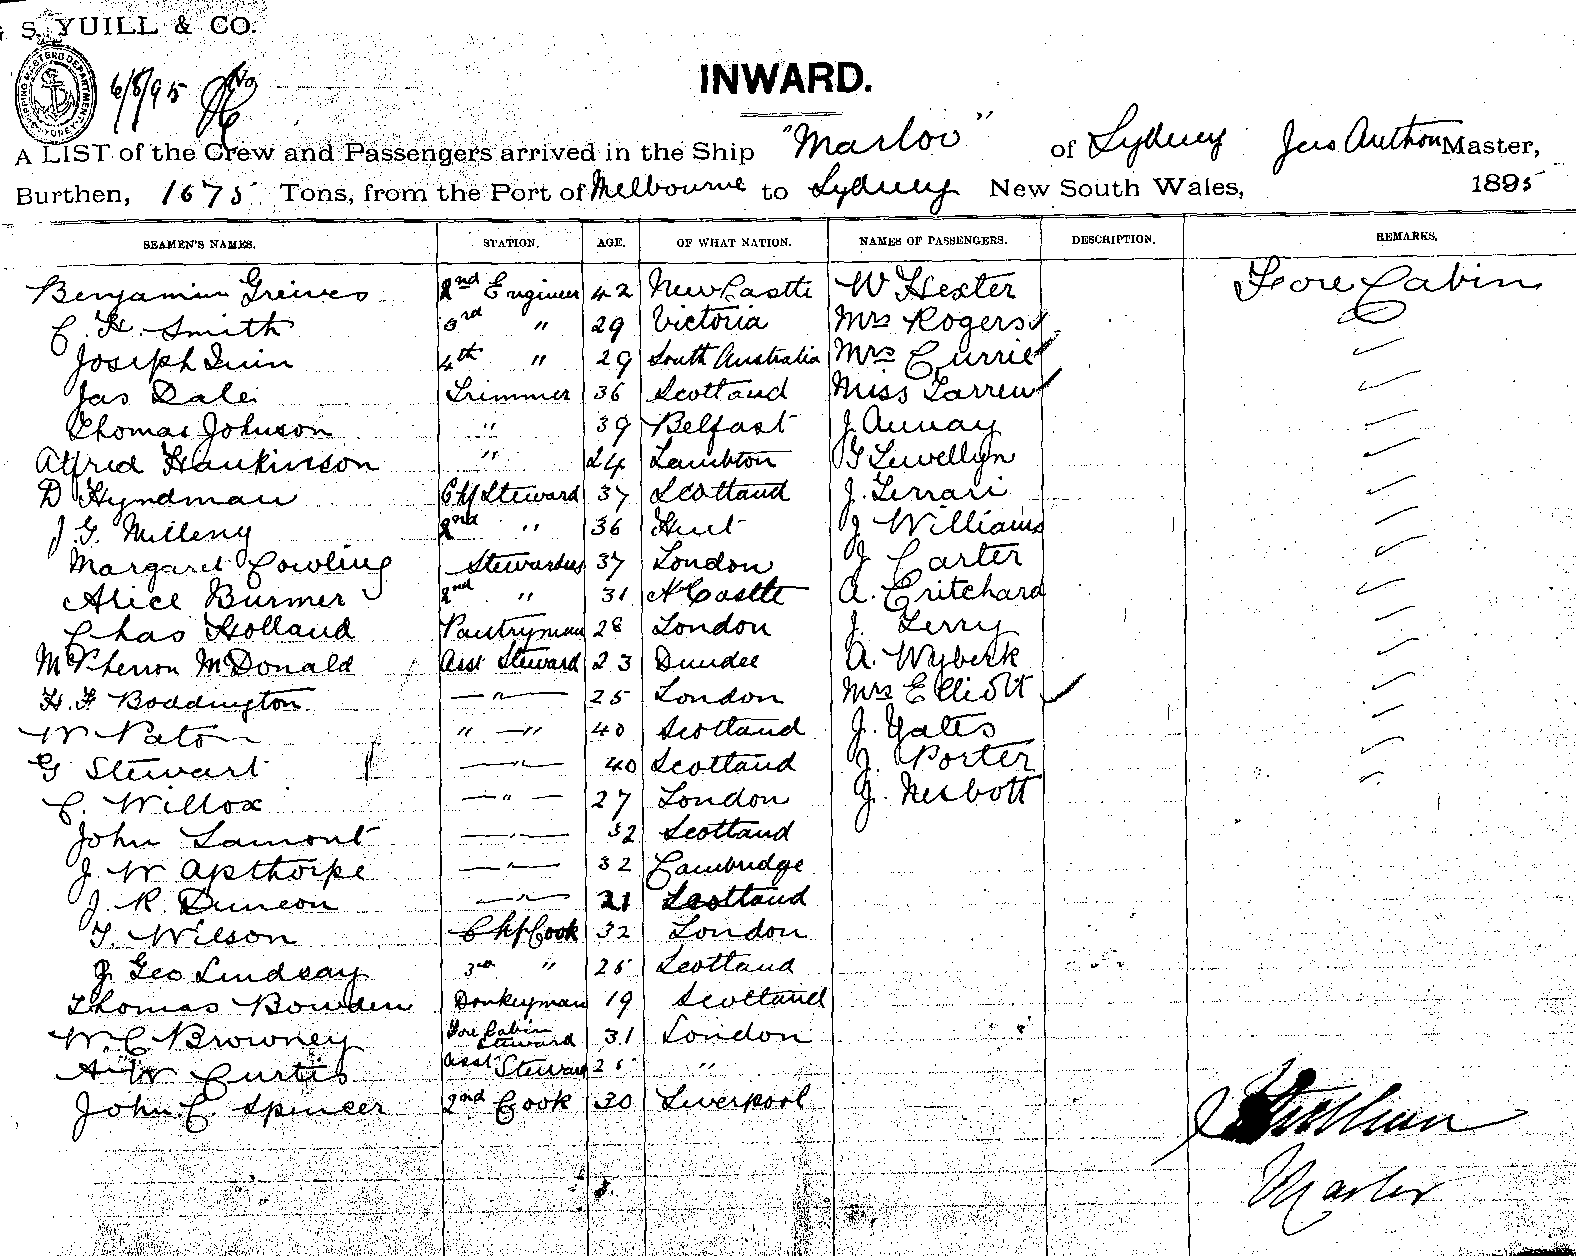 S. YUILL & CO.
6/8/95
INWARD.
A LIST of the Crew and Passengers arrived in the Ship "Marloo" of Sydney Master,
Burthen, 1675 Tons, from the Port of Melbourne to Sydney New South Wales, 1895
SEAMEN'S NAMES. STATION. AGE. OF WHAT NATION. NAMES OF PASSENGERS. DESCRIPTION. REMARKS.
Benjamin Greives 2nd Engineer 42 NewCastle W Hexter Fore Cabin
C. H. Smith 3rd " 29 Victoria Mrs Rogers
Joseph Quin 4th " 29 South Australia Mrs Currie
Jas Dale Trimmer 36 Scotland Miss
Thomas Johnson " 39 Belfast J.
Alfred Hankinson " 24 Lambton G Lewellyn
D Hyndman Chf Steward 37 Scotland J. Ferrari
J. G. 2nd " 36 J Williams
Margaret Cowling Stewardess 37 London J Carter
Alice Burmer 2nd " 31 N Castle A. Critchard
Chas Holland Pantryman 28 London J. Terry
McPherson McDonald Asst Steward 23 Dundee A. Wybeck
H. F Boddington — " — 25 London Mrs Elliott
W Paton " — " 40 Scotland J. Yates
G Stewart — " — 40 Scotland J. Porter
C. Willox — " — 27 London J. Nesbott
John Lamont — " — 32 Scotland
J W Apsthorpe — " — 32 Cambridge
J. R. Duncon — " — 21 Scotland
T. Wilson Chf Cook 32 London
J. Geo Lindsay 3rd " 25 Scotland
Thomas Bowden Donkeyman 19 Scotland
W. C Browney Fore Cabin Steward 31 London
A. W Curtis Asst Steward 25 "
John C. Spencer 2nd Cook 30 Liverpool
Master